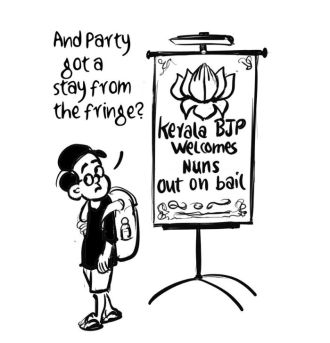 And Party
got a
stay from
the fringe?
Kerala BJP
Welcomes
Nuns
out on bail